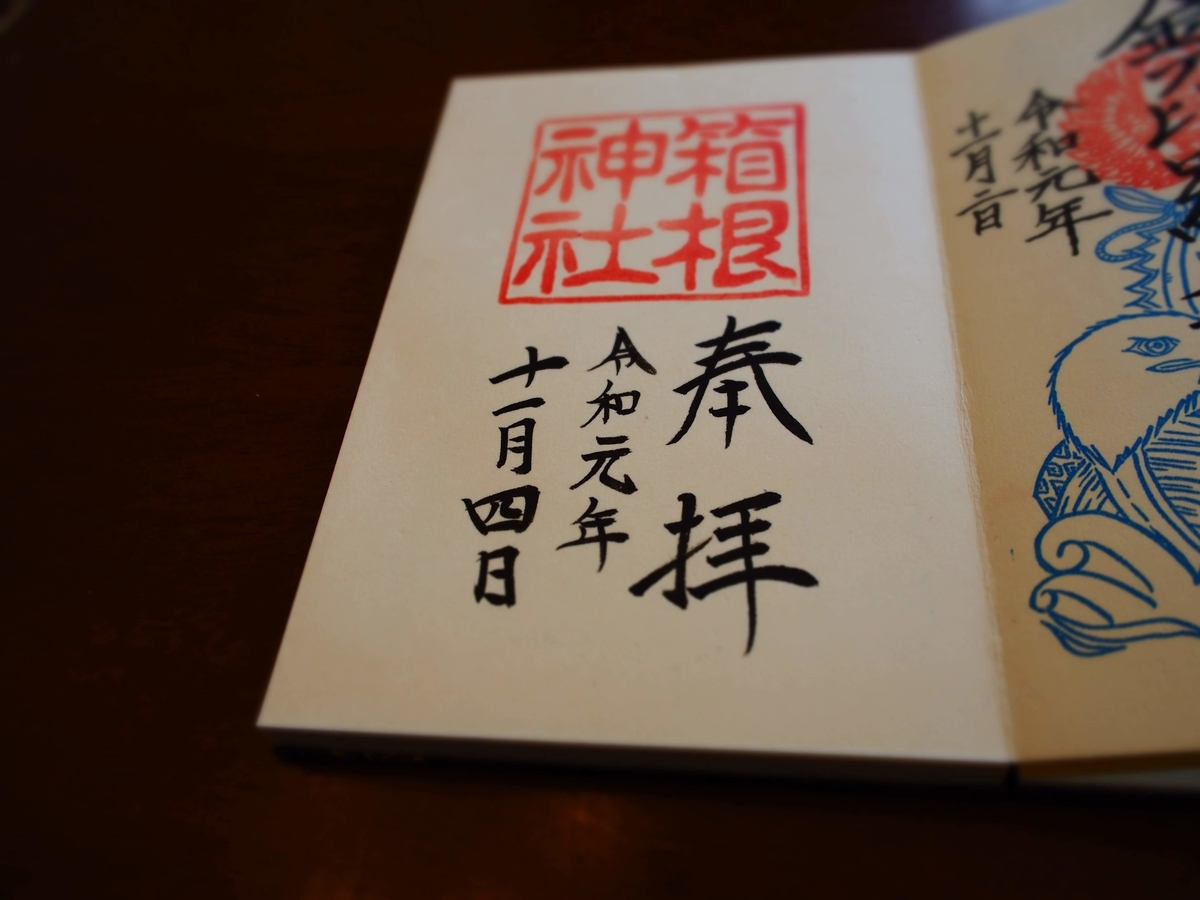 金
令和元年
十一月二日
箱根
神社
奉拝
令和元年
十一月四日